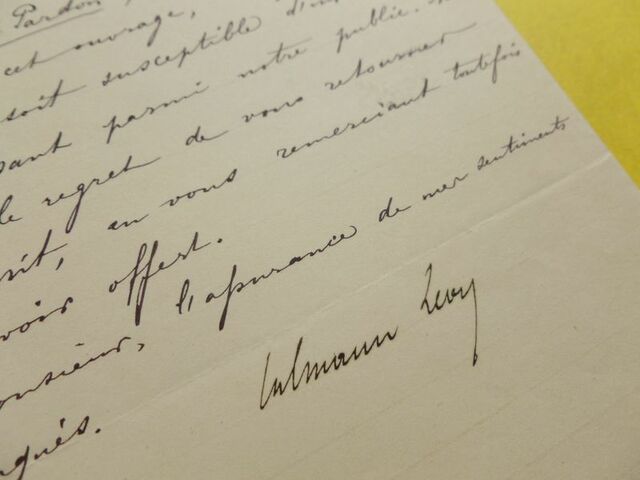 Pardon,
cet ouvrage,
soit susceptible
sant parmi notre public.
le regret de vous retourner
rit, en vous remerciant toutefois
voir offert.
onsieur, l'assurance de mes sentiments
gués.
Calmann Levy